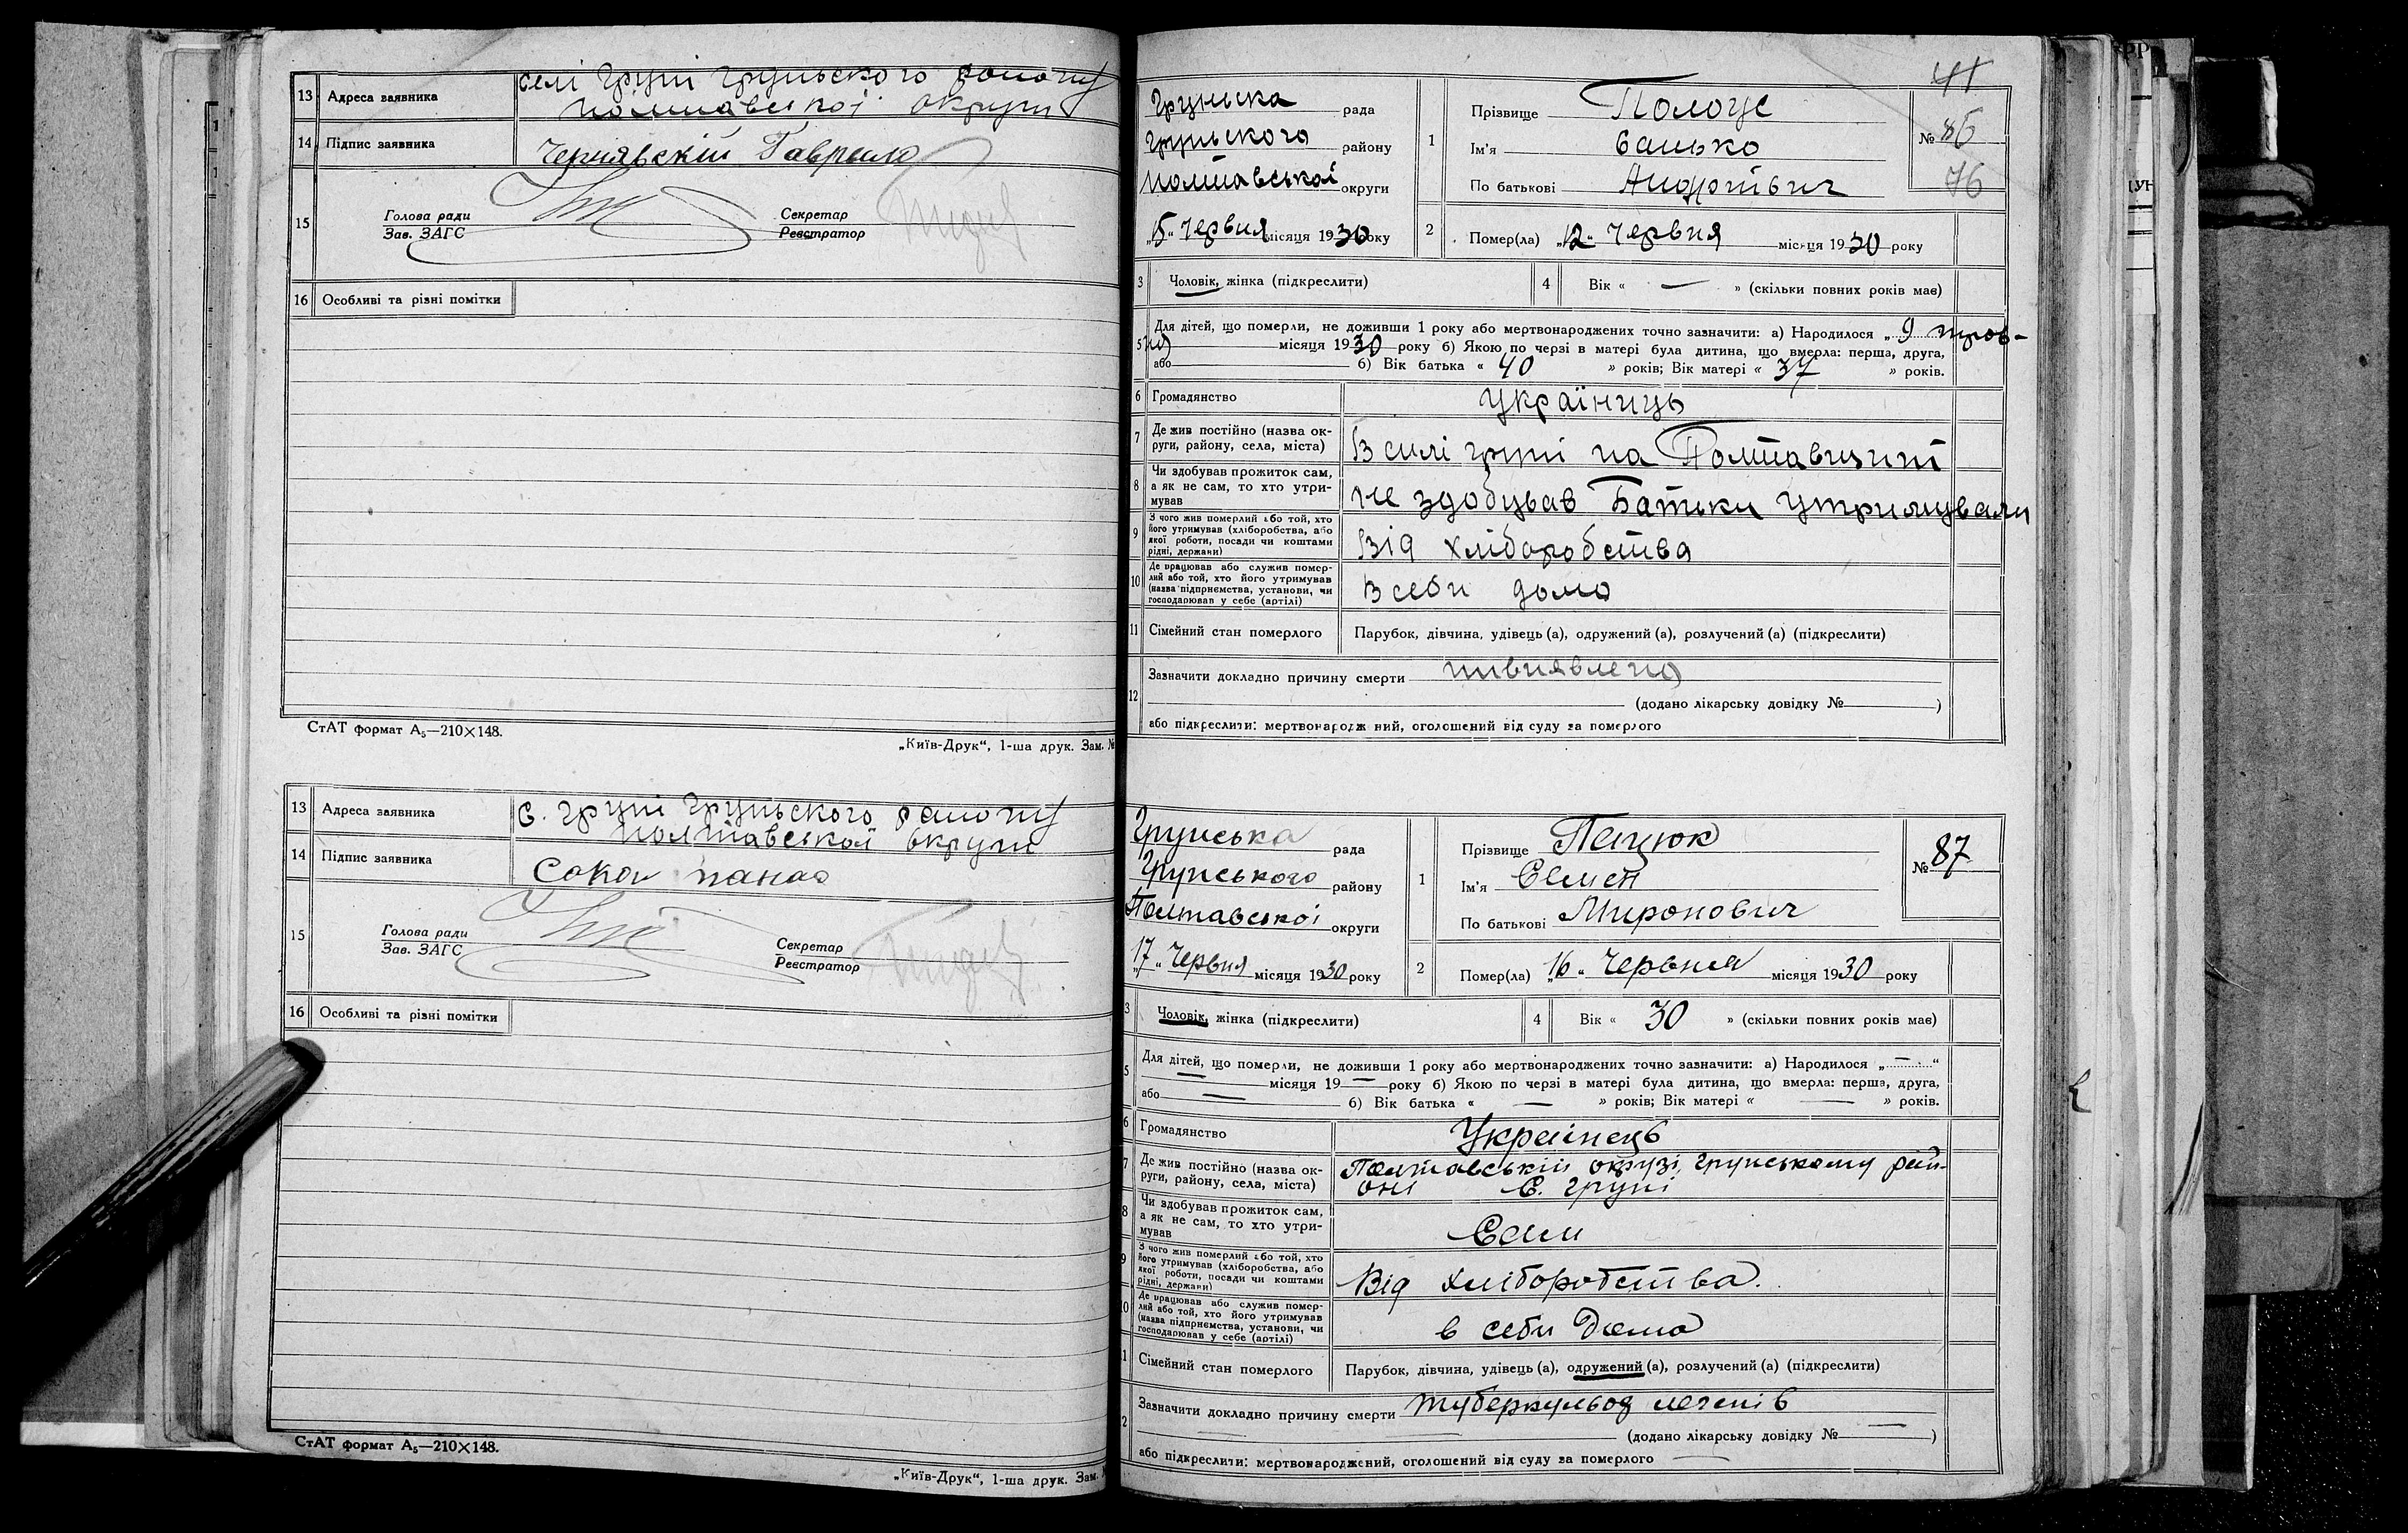 13 Адреса заявника селі Груні Груньского району
полтавської округи
14 Підпис заявника Чернявскій Гаврыло
15 Голова ради
Зав. ЗАГС
Секретар
Реєстратор
16 Особливі та різні помітки
СтАТ формат А₅—210×148.
„Київ-Друк“, 1-ша друк. Зам. №
13 Адреса заявника с. Груні Груньского району
полтавської округи
14 Підпис заявника Сокол панас
15 Голова ради
Зав. ЗАГС
Секретар
Реєстратор
16 Особливі та різні помітки
СтАТ формат А₅—210×148.
„Київ-Друк“, 1-ша друк. Зам.
Груньска рада
Груньского району
полтавської округи
„15“ Червня місяця 1930 року
1 Прізвище
Ім'я
По батькові Андрійович
№ 86
76
2 Помер(ла) „12“ Червня місяця 1930 року
3 Чоловік, жінка (підкреслити)
4 Вік « — » (скільки повних років має)
5 Для дітей, що померли, не доживши 1 року або мертвонароджених точно зазначити: а) Народилося „ 9 трав-
ня місяця 1930 року б) Якою по черзі в матері була дитина, що вмерла: перша, друга,
або б) Вік батька « 40 » років; Вік матері « 37 » років.
6 Громадянство Україниць
7 Де жив постійно (назва округи, району, села, міста) В силі груні на Полтавщині
8 Чи здобував прожиток сам, а як не сам, то хто утримував не здобував Батьки утримували
9 З чого жив померлий або той, хто його утримував (хліборобства, або якої роботи, посади чи коштами рідні, держави) Від хліборобства
10 Де працював або служив померлий або той, хто його утримував (назва підприємства, установи, чи господарював у себе (артілі) В себи дома
11 Сімейний стан померлого Парубок, дівчина, удівець (а), одружений (а), розлучений (а) (підкреслити)
12 Зазначити докладно причину смерти нивиявлено
(додано лікарську довідку № )
або підкреслити: мертвонароджений, оголошений від суду за померлого
Грунська рада
Грунського району
Полтавської округи
„17“ Червня місяця 1930 року
1 Прізвище Пацюк
Ім'я
По батькові Миронович
№ 87
2 Помер(ла) „16“ Червня місяця 1930 року
3 Чоловік, жінка (підкреслити)
4 Вік « 30 » (скільки повних років має)
5 Для дітей, що померли, не доживши 1 року або мертвонароджених точно зазначити: а) Народилося „ — “
— місяця 19 — року б) Якою по черзі в матері була дитина, що вмерла: перша, друга,
або — б) Вік батька « — » років; Вік матері « — » років.
6 Громадянство Українець
7 Де жив постійно (назва округи, району, села, міста) Полтавській окрузі, Грунському рай-
оні С. Груні
8 Чи здобував прожиток сам, а як не сам, то хто утримував Сам
9 З чого жив померлий або той, хто його утримував (хліборобства, або якої роботи, посади чи коштами рідні, держави) Від хліборобства.
10 Де працював або служив померлий або той, хто його утримував (назва підприємства, установи, чи господарював у себе (артілі) в себи Дома
11 Сімейний стан померлого Парубок, дівчина, удівець (а), одружений (а), розлучений (а) (підкреслити)
12 Зазначити докладно причину смерти туберкульоз легенів
— (додано лікарську довідку № — )
або підкреслити: мертвонароджений, оголошений від суду за померлого —